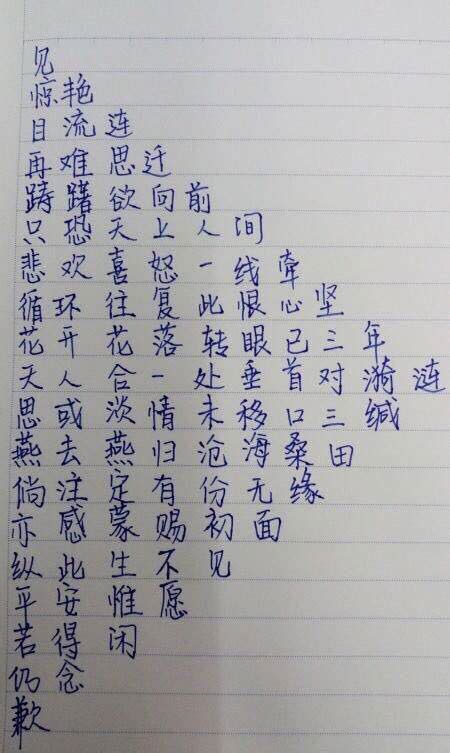 见
惊艳
目流连
再难思迁
踌躇欲向前
只恐天上人间
悲欢喜怒一线牵
循环往复此恨心坚
花开花落转眼已三年
天人合一处垂首对漪涟
思或淡情未移口三缄
燕去燕归沧海桑田
倘注定有份无缘
亦感蒙赐初面
纵此生不见
平安惟愿
若得闲
仍念
歉